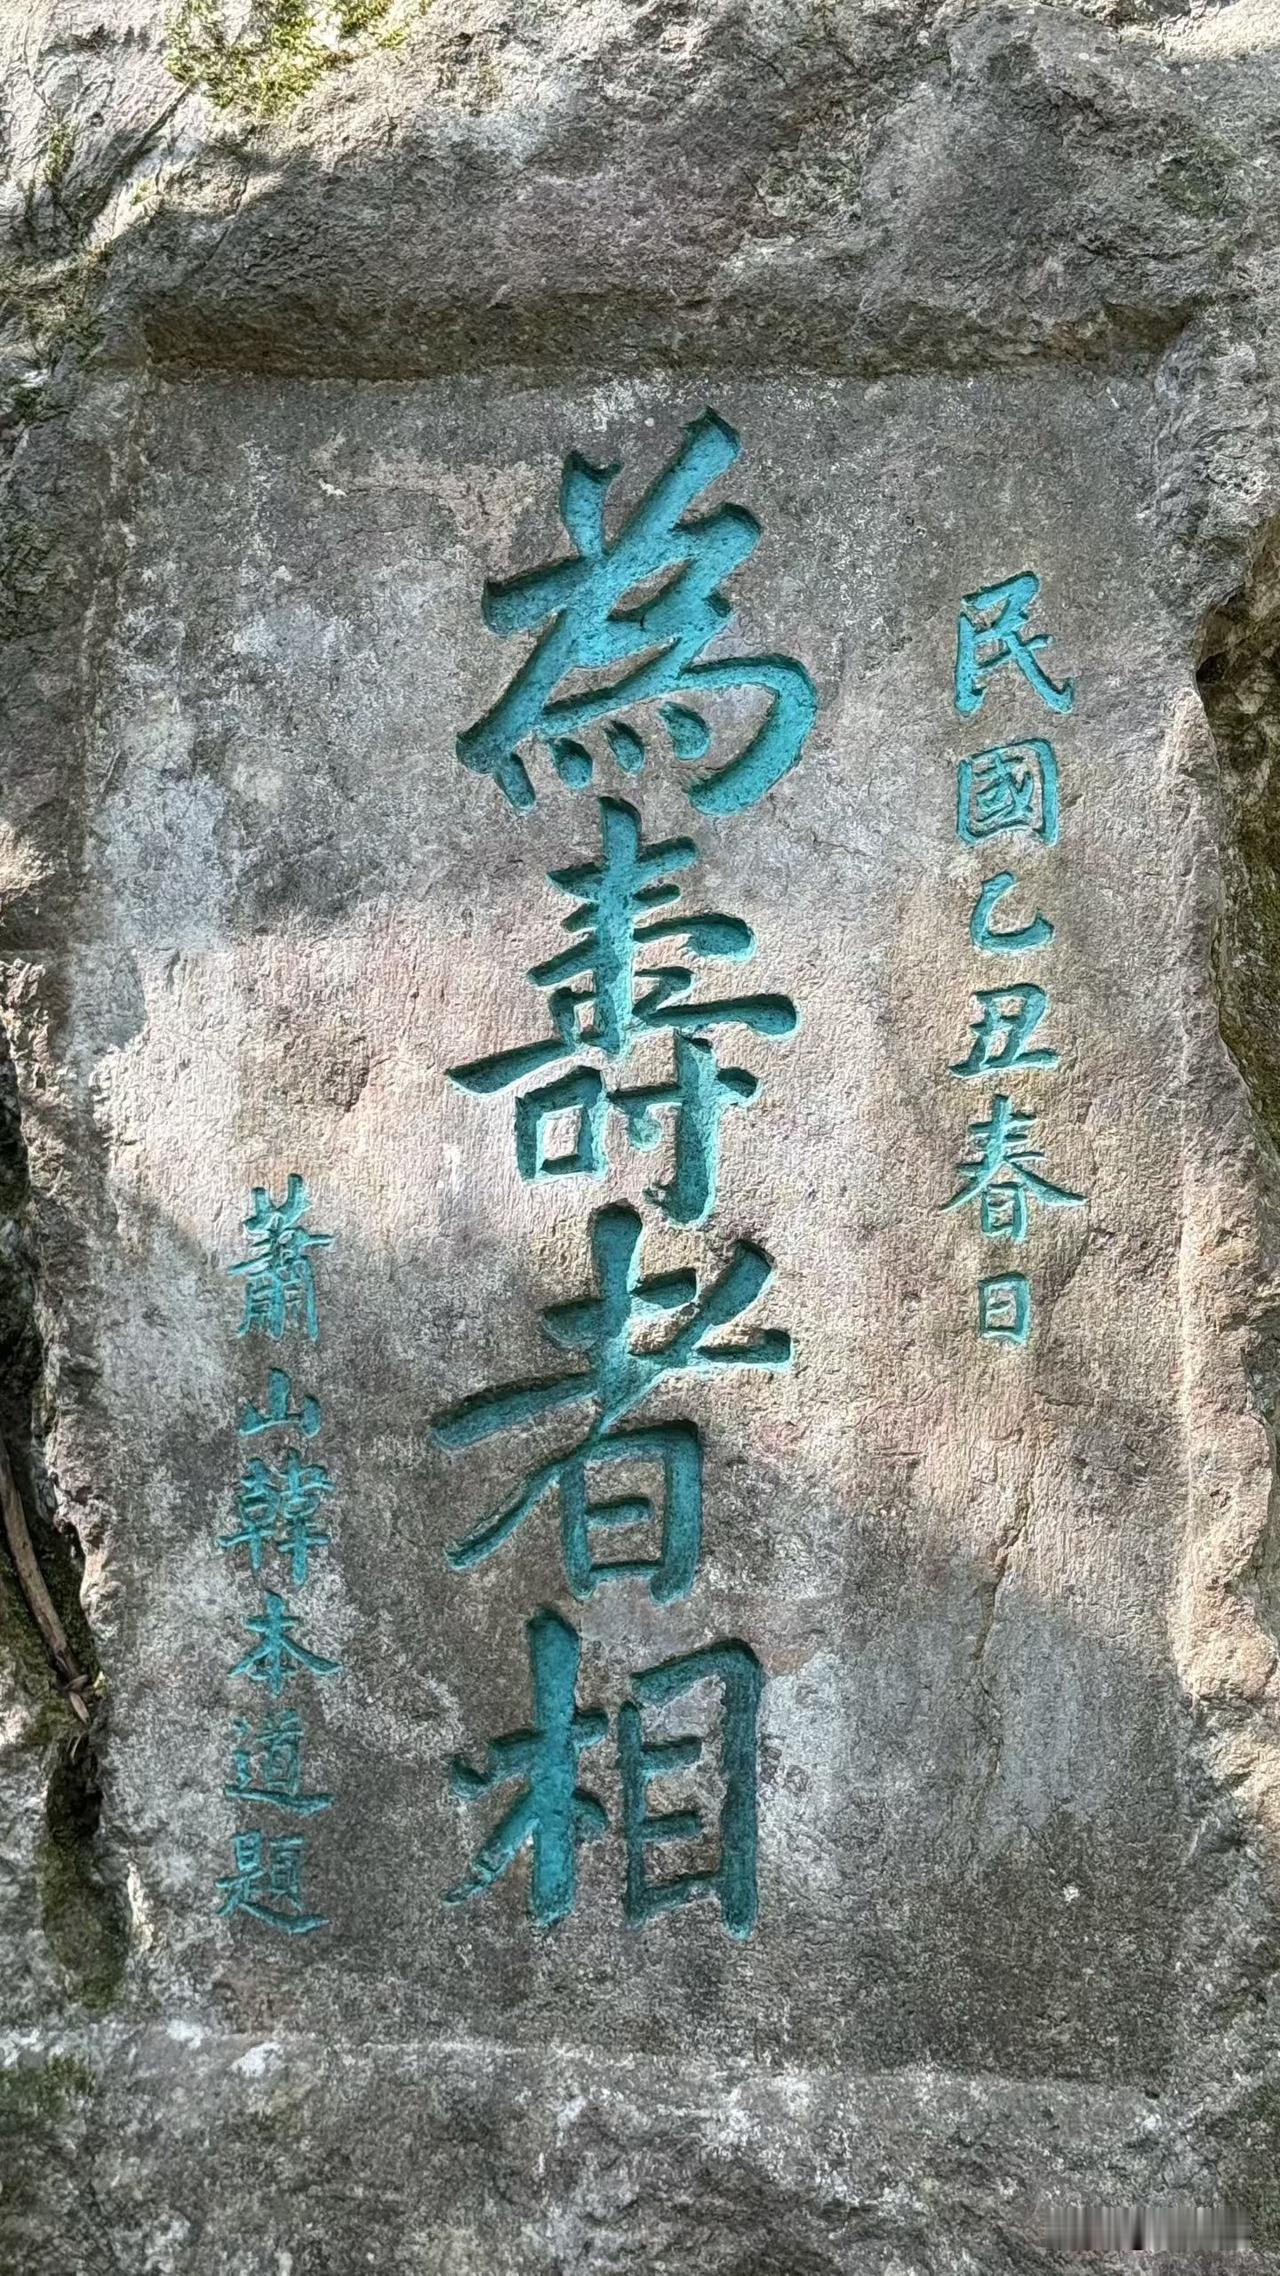 民國乙丑春日
為壽者相
蕭山韓本道題